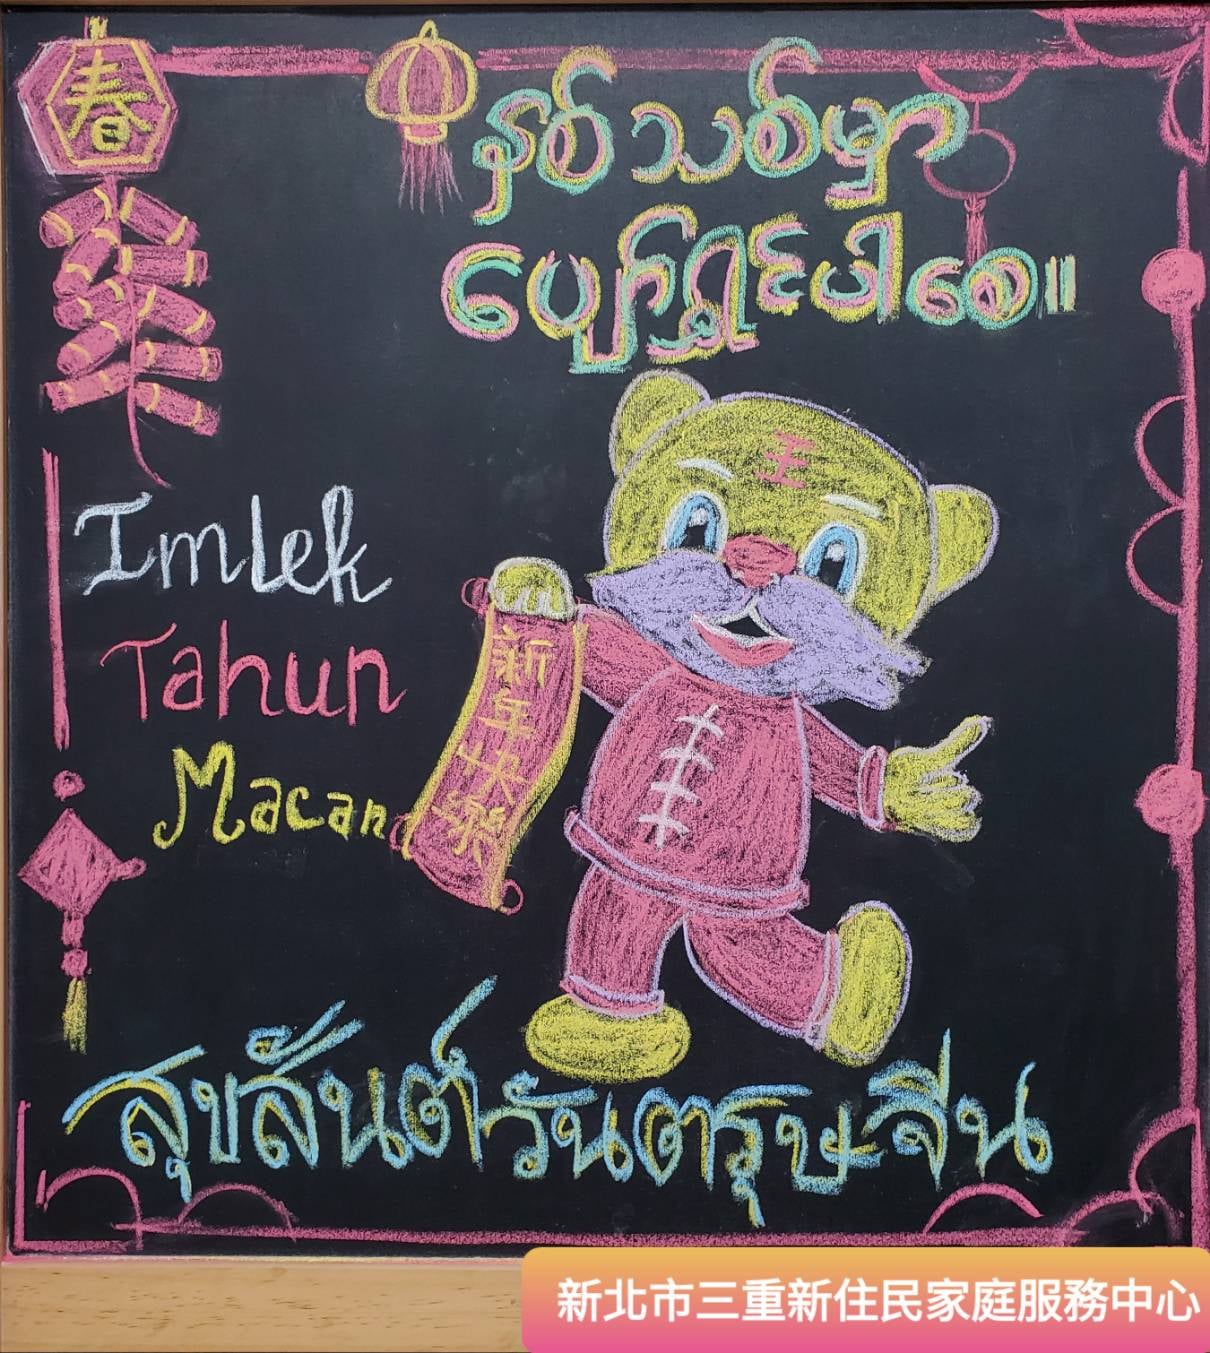 春
နှစ်သစ်မှာ
ပျော်ရွှင်ပါစေ။
王
Imlek
Tahun
Macan
新年快樂
สุขสันต์วันตรุษจีน
新北市三重新住民家庭服務中心